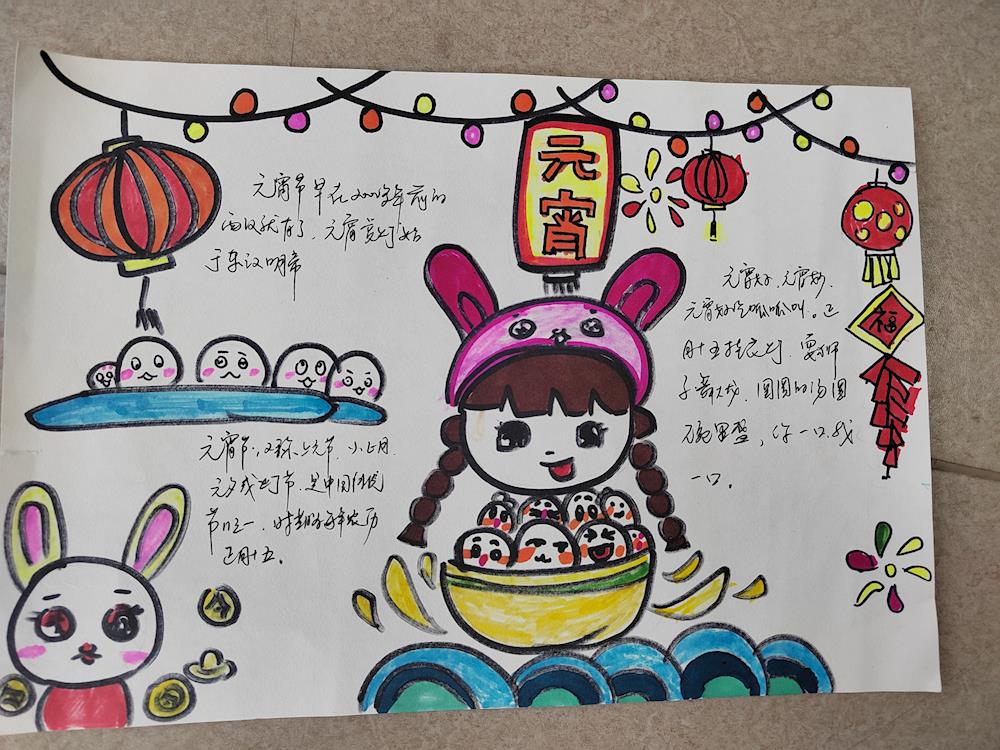 元宵
福
元宵节早在2000多年前的
西汉就有了、元宵赏灯始
于东汉明帝
元宵节,又称上元节、小正月、
元夕或灯节,是中国传统
节日之一,时间为每年农历
正月十五。
元宵好、元宵妙、
元宵好吃呱呱叫。正
月十五挂花灯、耍狮
子舞龙、圆圆的汤圆
碗里盛,你一口我
一口。